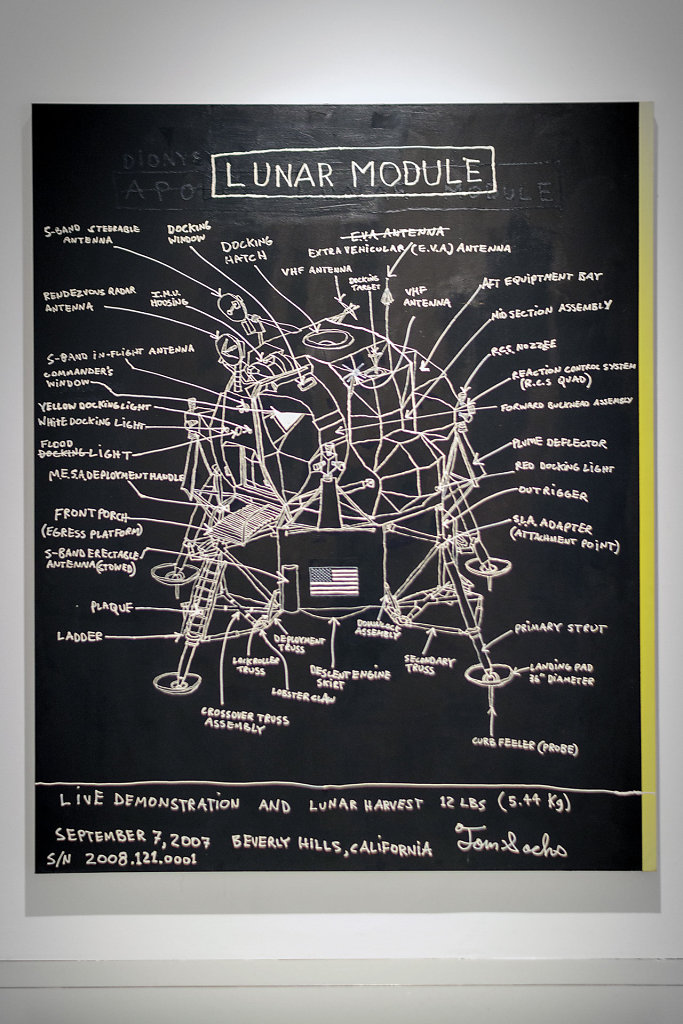 DIONYS
LUNAR MODULE
APO MODULE
S-BAND STEERABLE
ANTENNA
DOCKING
WINDOW
DOCKING
HATCH
EVA ANTENNA
EXTRA VEHICULAR (E.V.A) ANTENNA
VHF ANTENNA
DOCKING
TARGET
VHF
ANTENNA
AFT EQUIPTMENT BAY
RENDEZVOUS RADAR
ANTENNA
I.M.U.
HOUSING
MID SECTION ASSEMBLY
S-BAND IN-FLIGHT ANTENNA
R.C.S. NOZZEE
COMMANDER'S
WINDOW
REACTION CONTROL SYSTEM
(R.C.S QUAD)
YELLOW DOCKING LIGHT
FORWARD BUCKHEAD ASSEMBLY
WHITE DOCKING LIGHT
FLOOD
DOCKING LIGHT
PLUME DEFLECTOR
M.E.S.A. DEPLOYMENT HANDLE
RED DOCKING LIGHT
OUTRIGGER
FRONT PORCH
(EGRESS PLATFORM)
S.L.A. ADAPTER
(ATTACHMENT POINT)
S-BAND ERECTABLE
ANTENNA (STOWED)
PLAQUE
LADDER
DEPLOYMENT
TRUSS
ASSEMBLY
PRIMARY STRUT
LOCKROLLER
TRUSS
LOBSTER CLAW
DESCENT ENGINE
SKIRT
SECONDARY
TRUSS
LANDING PAD
36" DIAMETER
CROSSOVER TRUSS
ASSEMBLY
CURB FEELER (PROBE)
LIVE DEMONSTRATION AND LUNAR HARVEST 12 LBS (5.44 Kg)
SEPTEMBER 7, 2007 BEVERLY HILLS, CALIFORNIA Tom Sachs
S/N 2008.121.0001